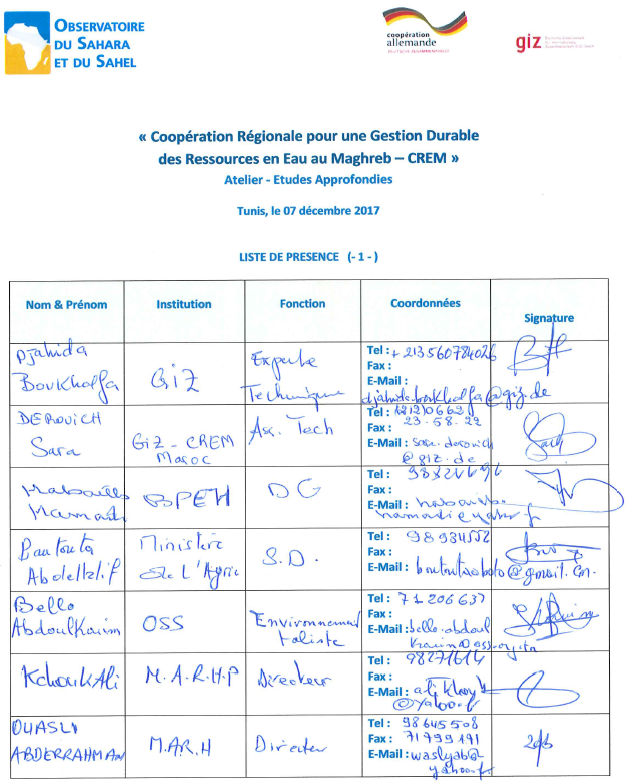 OBSERVATOIRE
DU SAHARA
ET DU SAHEL
coopération
allemande
DEUTSCHE ZUSAMMENARBEIT
giz
« Coopération Régionale pour une Gestion Durable
des Ressources en Eau au Maghreb – CREM »
Atelier - Etudes Approfondies
Tunis, le 07 décembre 2017
LISTE DE PRESENCE (- 1 - )
Nom & Prénom Institution Fonction Coordonnées Signature
Djahida
Boukhalfa
GIZ
Experte
Technique
Tel : + 213 560784026
Fax :
E-Mail :
djahida.boukhalfa@giz.de
DEROUICH
Sara
GIZ - CREM
Maroc
Ass. Tech
Tel :
Fax : 23.58.22
E-Mail : sara.derouich
@giz.de
BPEH
DG
Tel :
Fax :
E-Mail :
Boutouta
Abdelltif
Ministère
de L'Agric
S.D.
Tel : 98934552
Fax :
E-Mail :
Bello
Abdoulkarim
OSS
Environnemen
taliste
Tel : 71 206 637
Fax :
E-Mail : bello.abdoul
Kchouk Ali
M.A.R.H.P
Directeur
Tel : 98271614
Fax :
E-Mail :
OUASLI
ABDERRAHMAN
M.AR.H
Directeur
Tel : 98645508
Fax : 71999191
E-Mail :